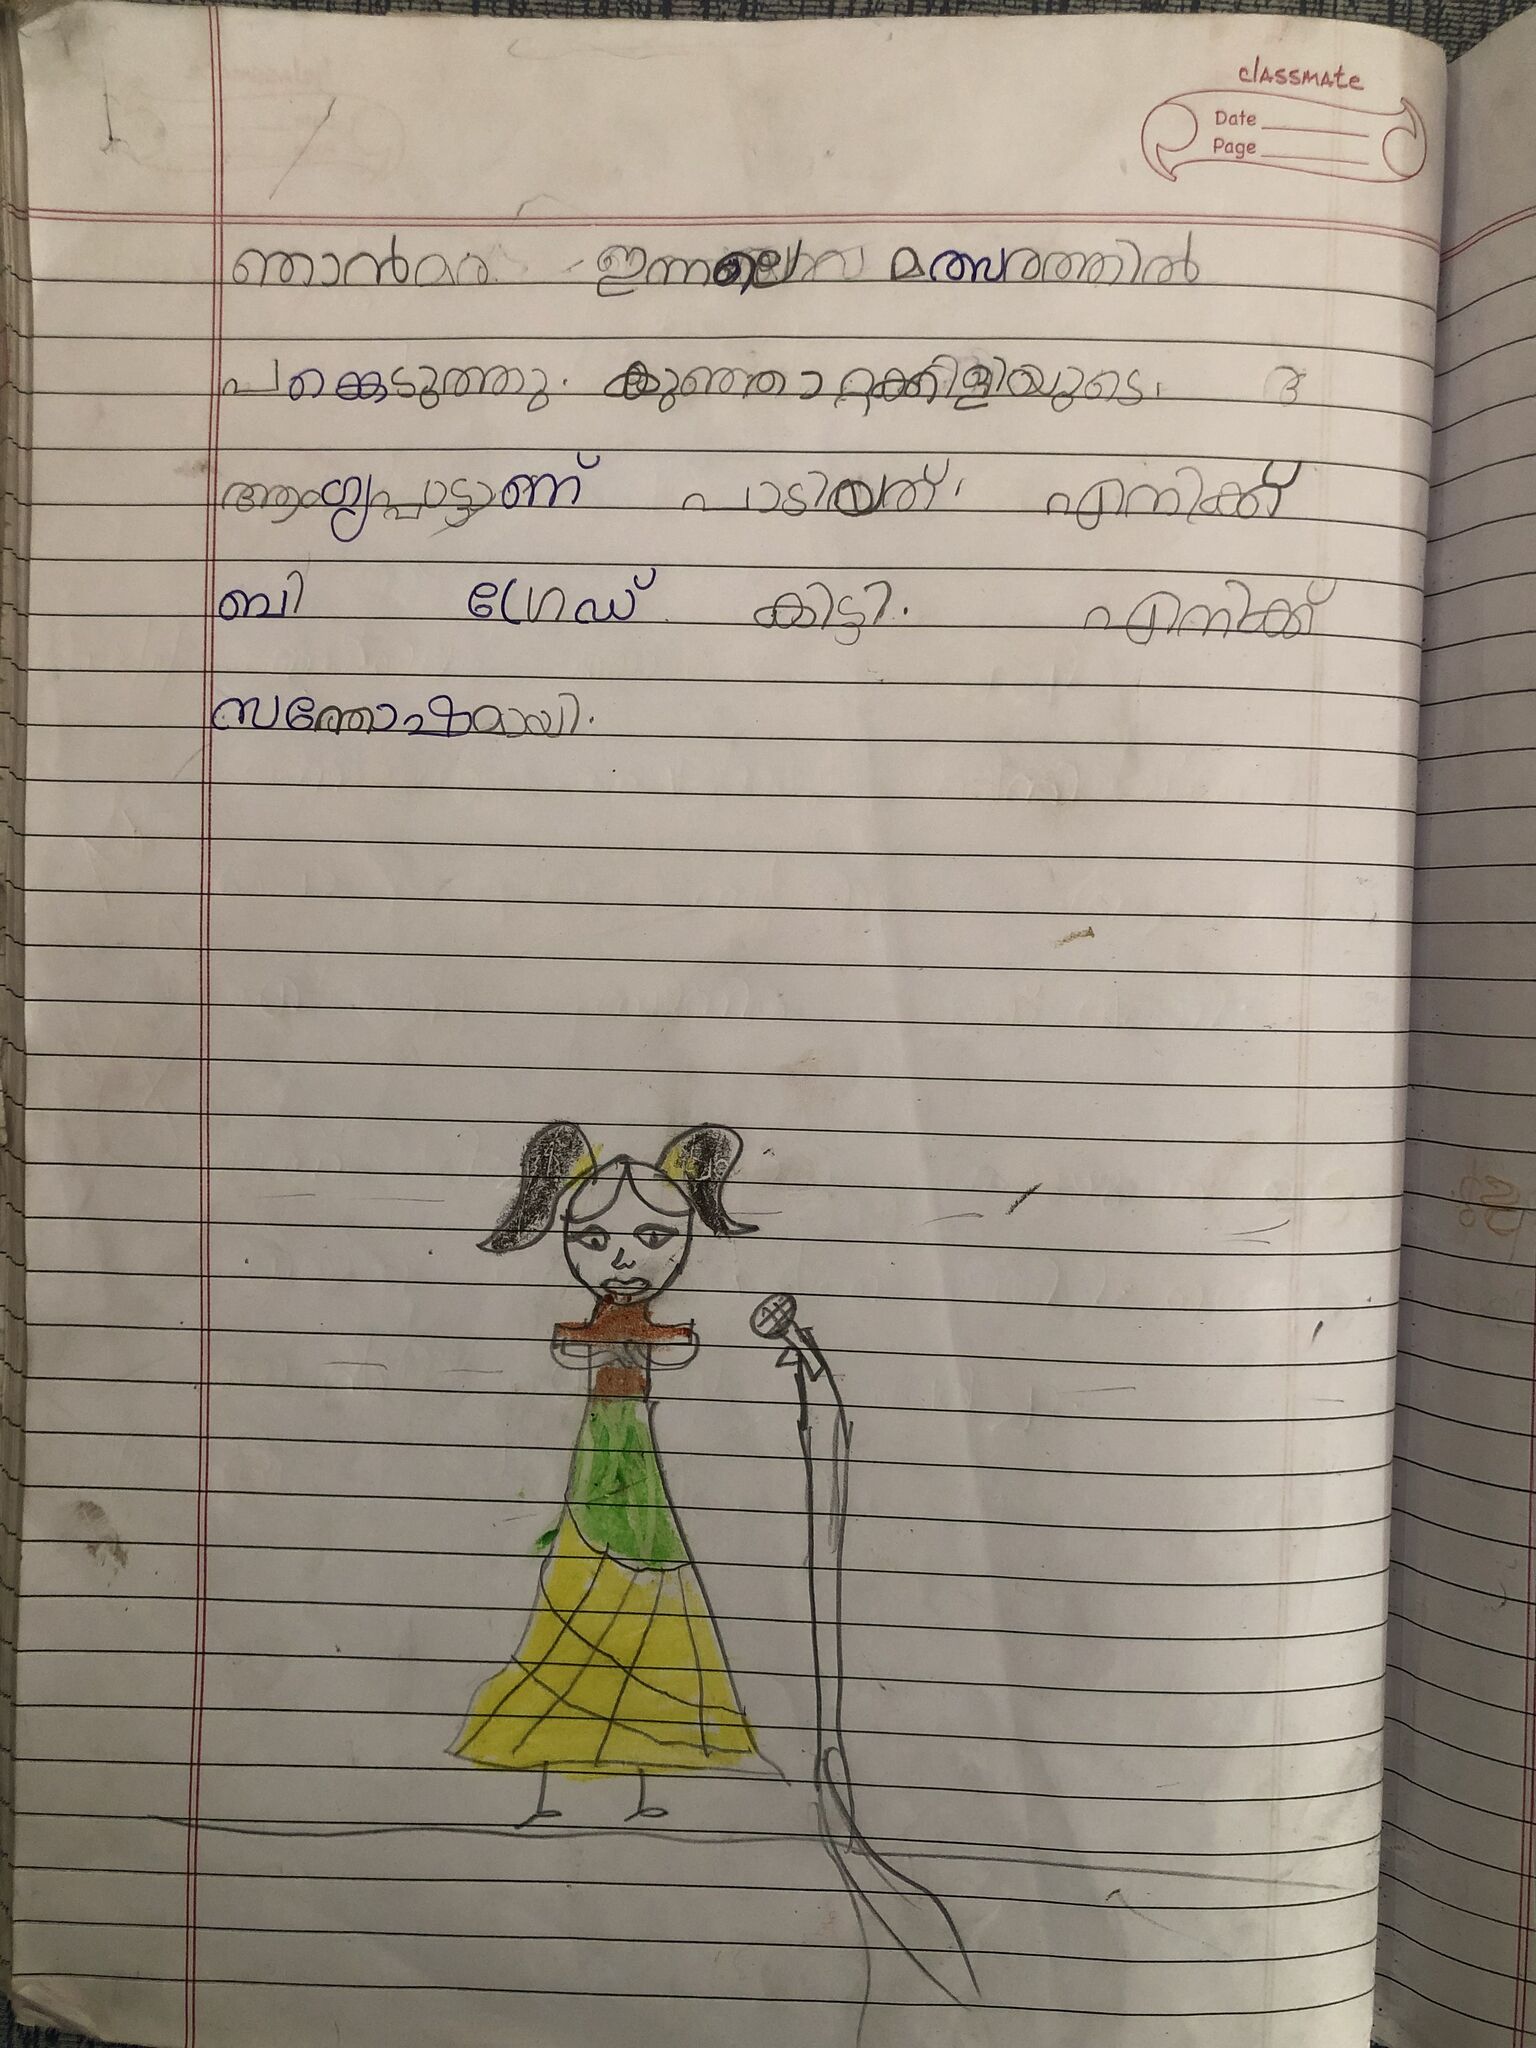 classmate
Date
Page
ഞാൻ ഇന്നലെ മത്സരത്തിൽ
പങ്കെടുത്തു. കുഞ്ഞാറ്റക്കിളിയുടെ.
ആംഗ്യപ്പാട്ടാണ് പാടിയത്. എനിക്ക്
ബി ഗ്രേഡ് കിട്ടി. എനിക്ക്
സന്തോഷമായി.